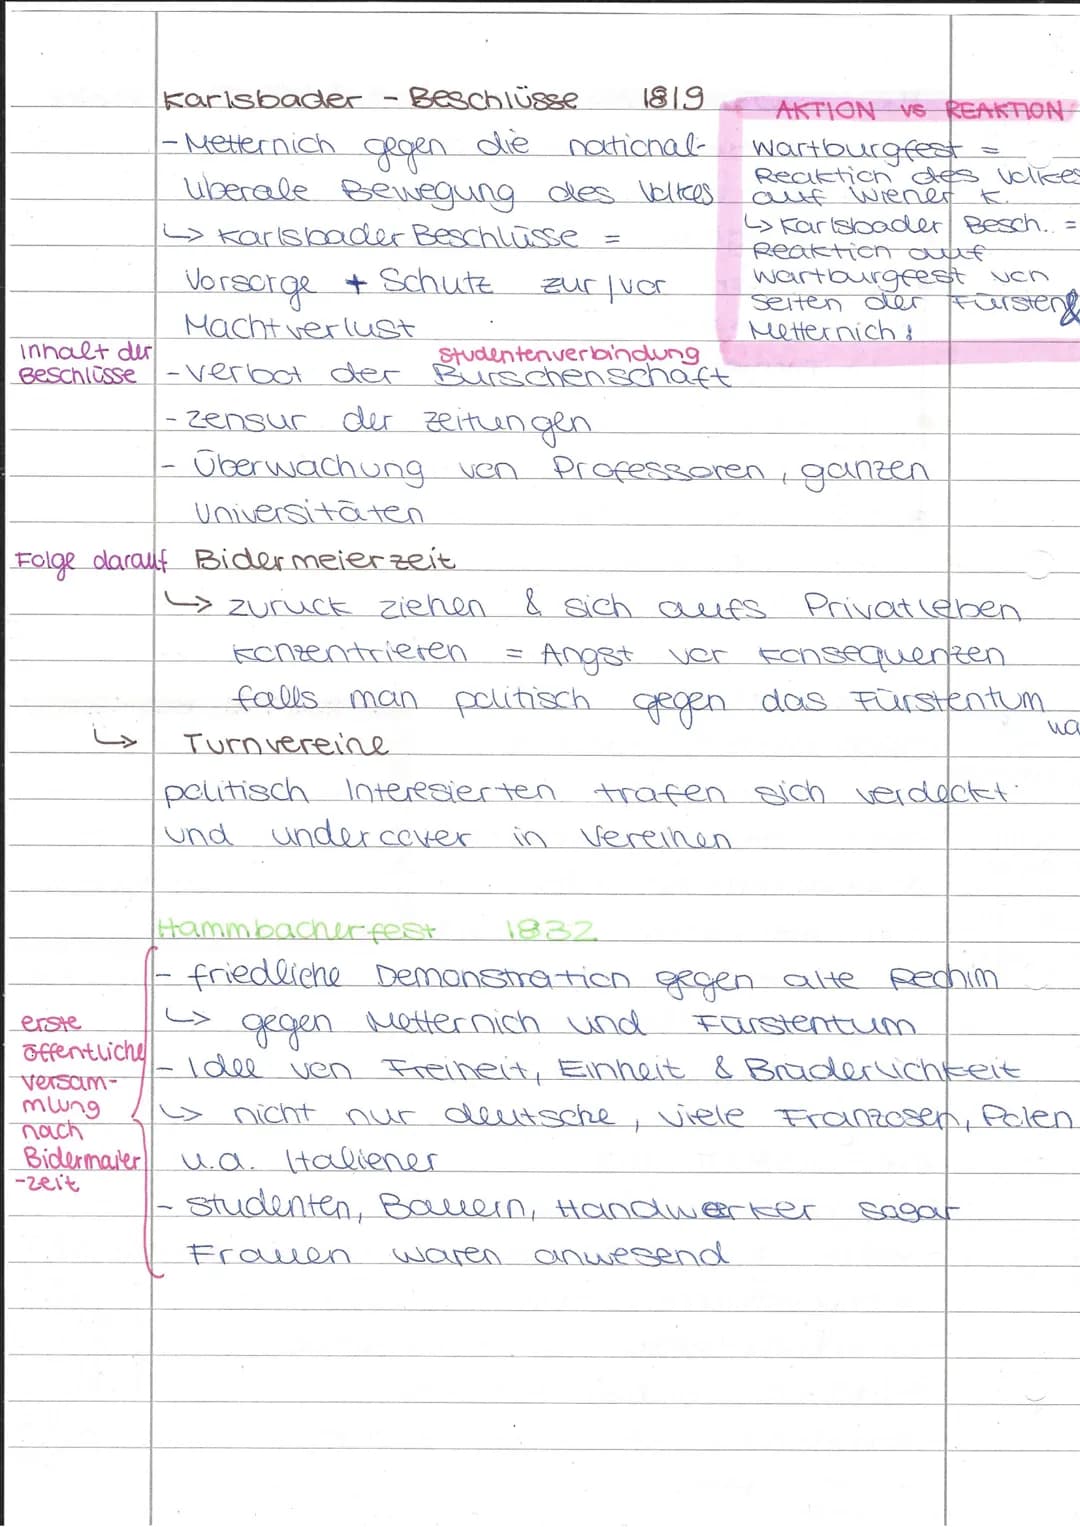 Karlsbader - Beschlüsse 1819
- Metternich gegen die national-
liberale Bewegung des Volkes
↳ Karlsbader Beschlüsse =
Vorsorge + Schutz zur/vor
Machtverlust
AKTION vs REAKTION
Wartburgfest =
Reaktion des Volkes
auf Wiener K.
↳ Karlsbader Besch. =
Reaktion auf
Wartburgfest von
seiten der Fürsten &
Metternich!
Inhalt der
Beschlüsse
studentenverbindung
- verbot der Burschenschaft
- zensur der zeitungen
- Überwachung von Professoren, ganzen
Universitäten
Folge darauf Bidermeierzeit
↳ zurück ziehen & sich aufs Privatleben
konzentrieren = Angst vor konsequenzen
falls man politisch gegen das Fürstentum
wa
↳ Turnvereine
politisch Interesierten trafen sich verdeckt
und undercover in Vereinen
Hammbacherfest 1832
- friedliche Demonstration gegen alte Rechim
↳ gegen Metternich und Fürstentum
- Idee von Freiheit, Einheit & Brüderlichkeit
↳ nicht nur deutsche, viele Franzosen, Polen
u.a. Italiener
- studenten, Bauern, Handwerker sogar
Frauen waren anwesend
erste
öffentliche
versam-
mlung
nach
Bidermaier
-zeit